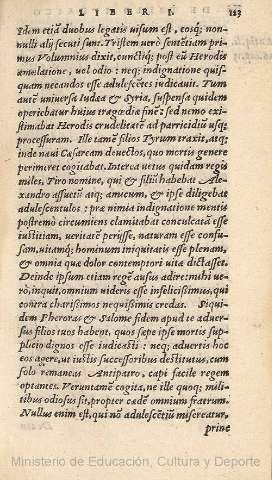 LIBER I. 123
Idem etiã duobus legatis uisum est, eosq́; non-
nulli alij secuti sunt. Tristem uerò sententiam pri-
mus Volumnius dixit, cunctiq́; post eũ Herodis
æmulatione, uel odio: neq; indignatione quis-
quam necandos esse adulescẽtes iudicauit. Tum
autẽ uniuersa Iudæa & Syria, suspensa quidem
operiebatur huius tragœdiæ finẽ: sed nemo exi-
stimabat Herodis crudelitatẽ ad parricidiũ usq;
processuram. Ille tamẽ filios Tyrum traxit, atq;
inde naui Cæsaream deuectos, quo mortis genere
perimeret cogitabat. Interea uetus quidam regis
miles, Tiro nomine, qui et filiũ habebat Ale-
xandro assuetũ atq; amicum, et ipse diligebat
adulescentulos: præ nimia indignatione mentis
postremò circumiens clamitabat conculcatã esse
iustitiam, ueritatẽ perijsse, naturam esse confu-
sam, uitamq́; hominum iniquitatis esse plenam,
& omnia quæ dolor contemptori uitæ dictasset.
Deinde ipsum etiam regẽ ausus adire: mihi ue-
rò, inquit, omnium uideris esse infelicissimus, qui
contra charissimos nequissimis credas. Siqui-
dem Pheroræ & Salome fidem apud te aduer-
sus filios tuos habent, quos sæpe ipse mortis sup-
plicio dignos esse iudicasti: neq; aduertis hoc
eos agere, ut iustis successoribus destitutus, cum
solo remaneas Antipatro, capi facile regem
optantes. Veruntamẽ cogita, ne ille quoq; mili-
tibus odiosus sit, propter cædẽ omnium fratrum.
Nullus enim est, qui nõ adulescẽtiũ misereatur,
prinæ
Ministerio de Educación, Cultura y Deporte